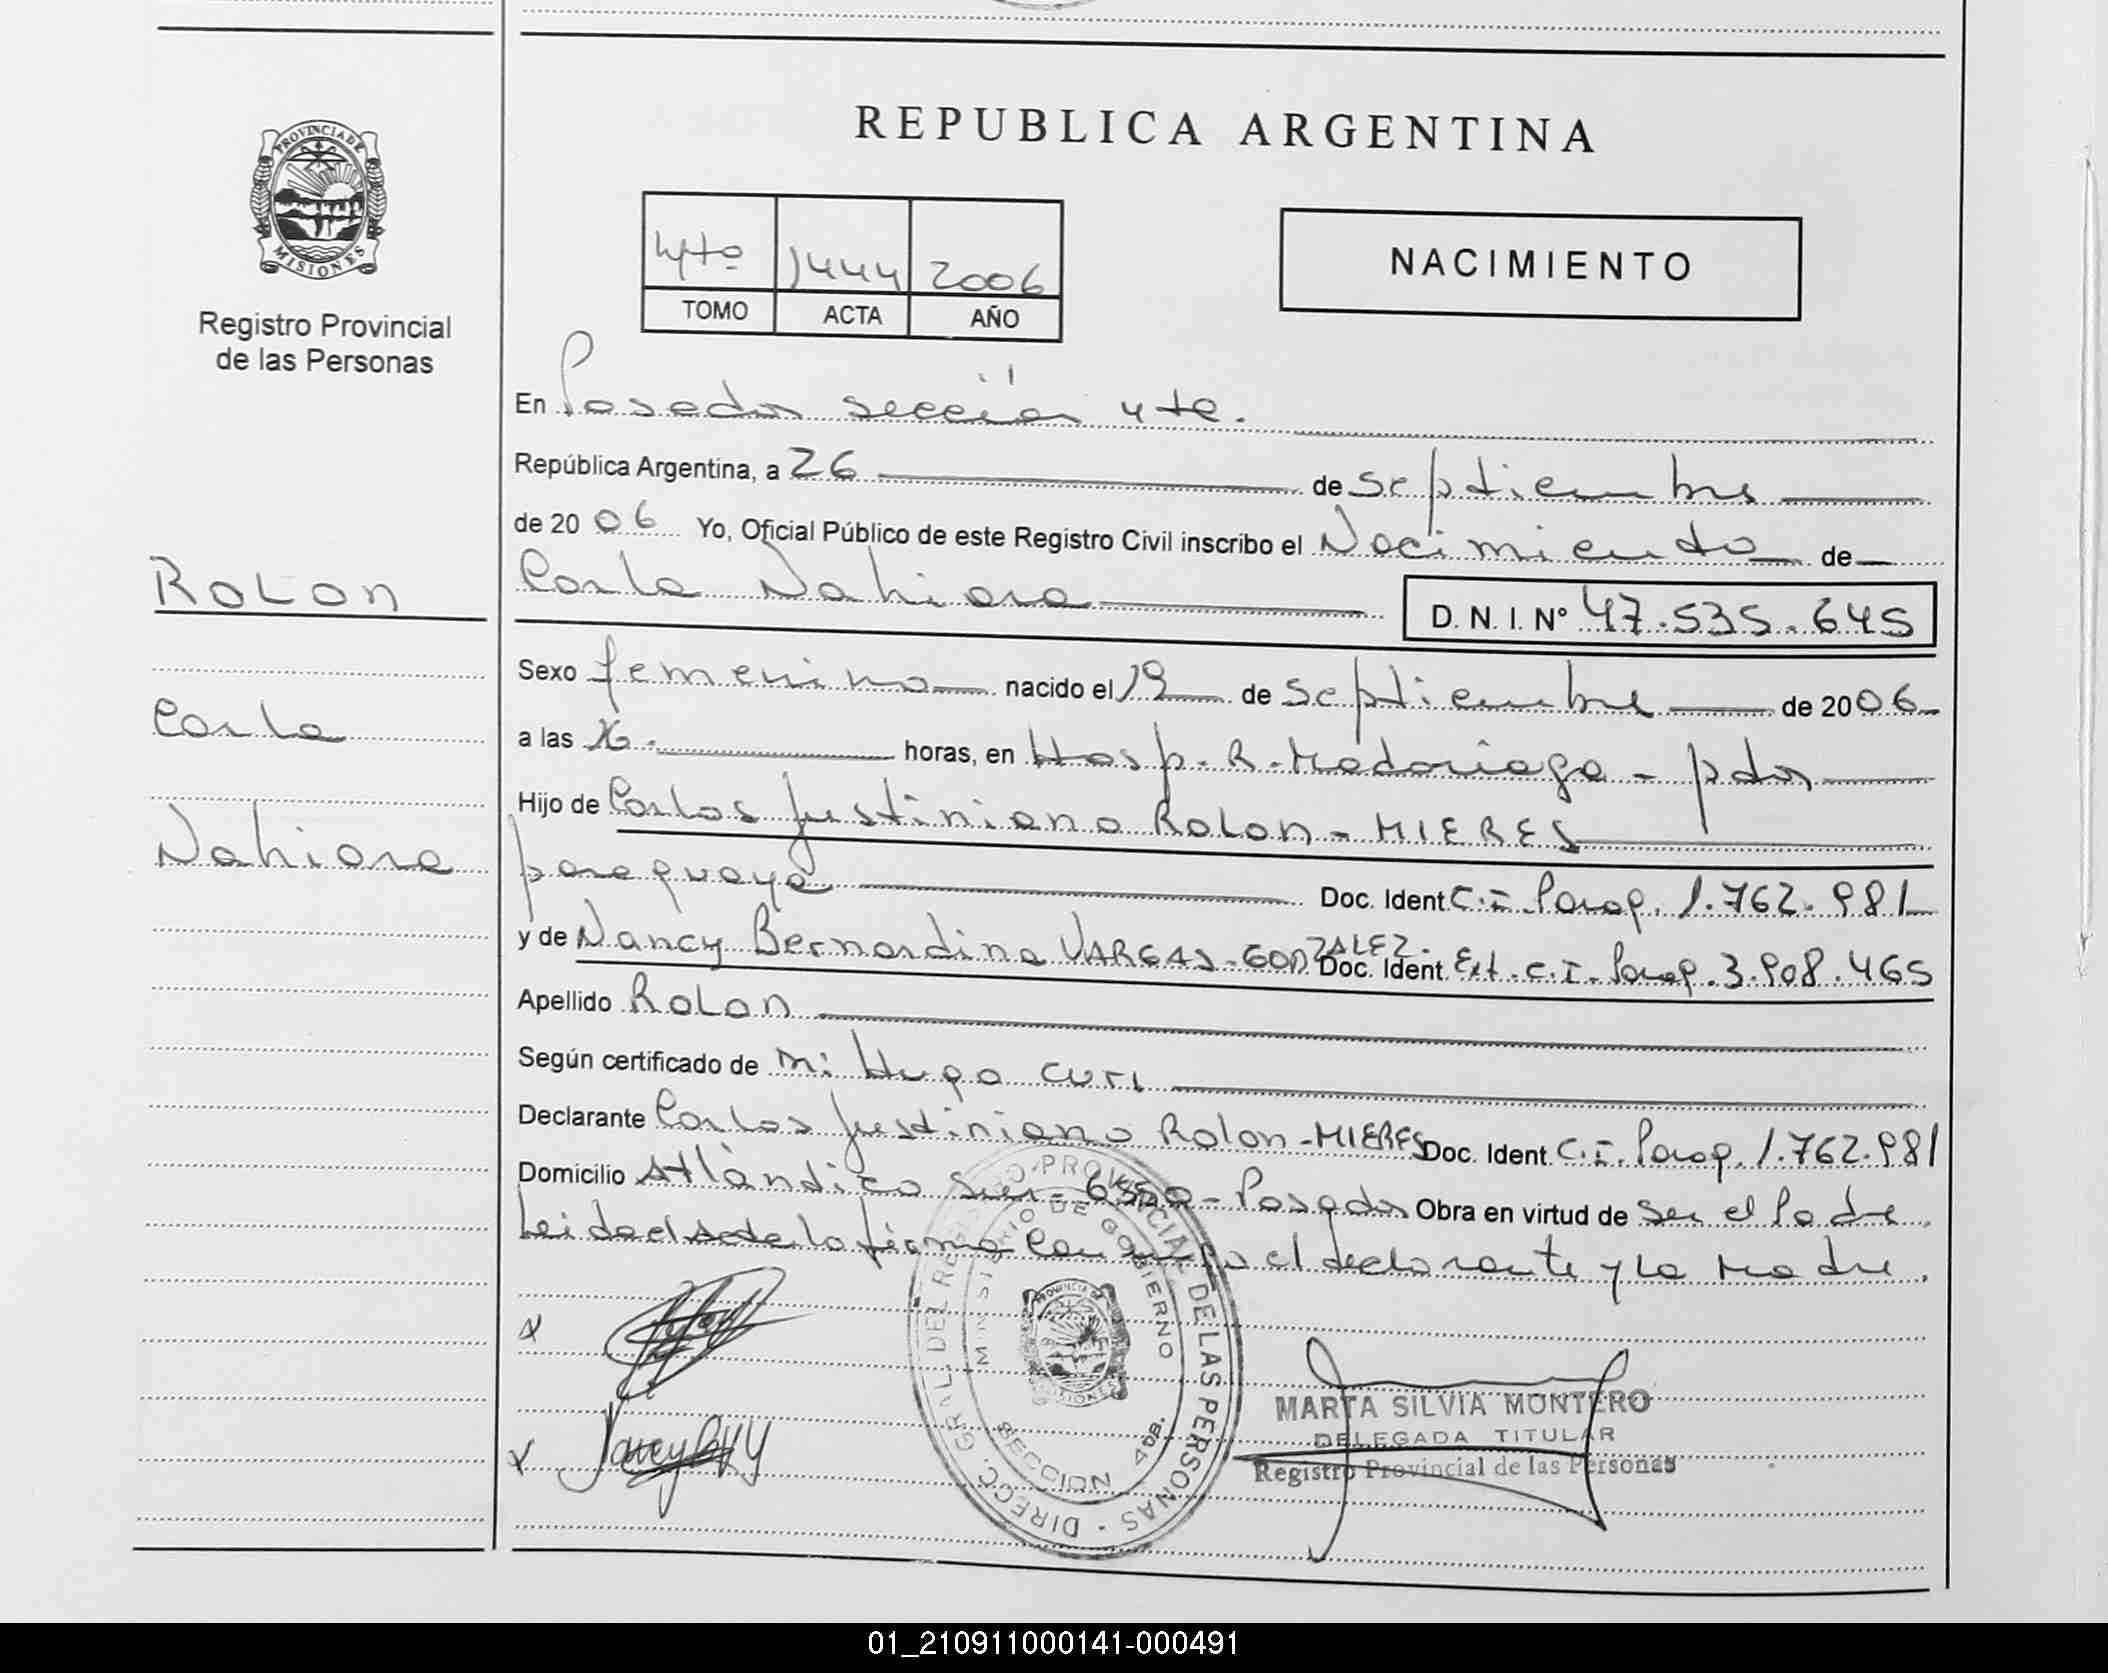 REPUBLICA ARGENTINA
PROVINCIA DE
MISIONES
Registro Provincial
de las Personas
4to 1444 2006
TOMO ACTA AÑO
NACIMIENTO
En Posadas sección 4ta.
República Argentina, a 26 de septiembre
de 2006 Yo, Oficial Público de este Registro Civil inscribo el Nacimiento de
ROLON
Carla Nahiara D. N. I. Nº 47.535.645
Sexo femenino nacido el 19 de septiembre de 2006
Carla
a las horas, en Hosp. R. Madariaga - pdas
Hijo de Carlos Justiniano ROLON - MIERES
Nahiara
paraguaya Doc. Ident C.I. Parag. 1.762.981
y de Nancy Bernardina VARGAS - GONZALEZ. Doc. Ident. Ext. C.I. Parag. 3.908.465
Apellido ROLON
Según certificado de Hugo CURI
Declarante Carlos Justiniano Rolon - MIERES Doc. Ident C.I. Parag. 1.762.981
Domicilio Atlántico Sur - - Posadas Obra en virtud de ser el Padre.
Leida el acta la firma conmigo el declarante y la Madre.
DIRECC. GRAL. DEL REGISTRO PROVINCIAL DE LAS PERSONAS
MINISTERIO DE GOBIERNO
SECCION 4ta.
MARTA SILVIA MONTERO
DELEGADA TITULAR
Registro Provincial de las Personas
01_210911000141-000491